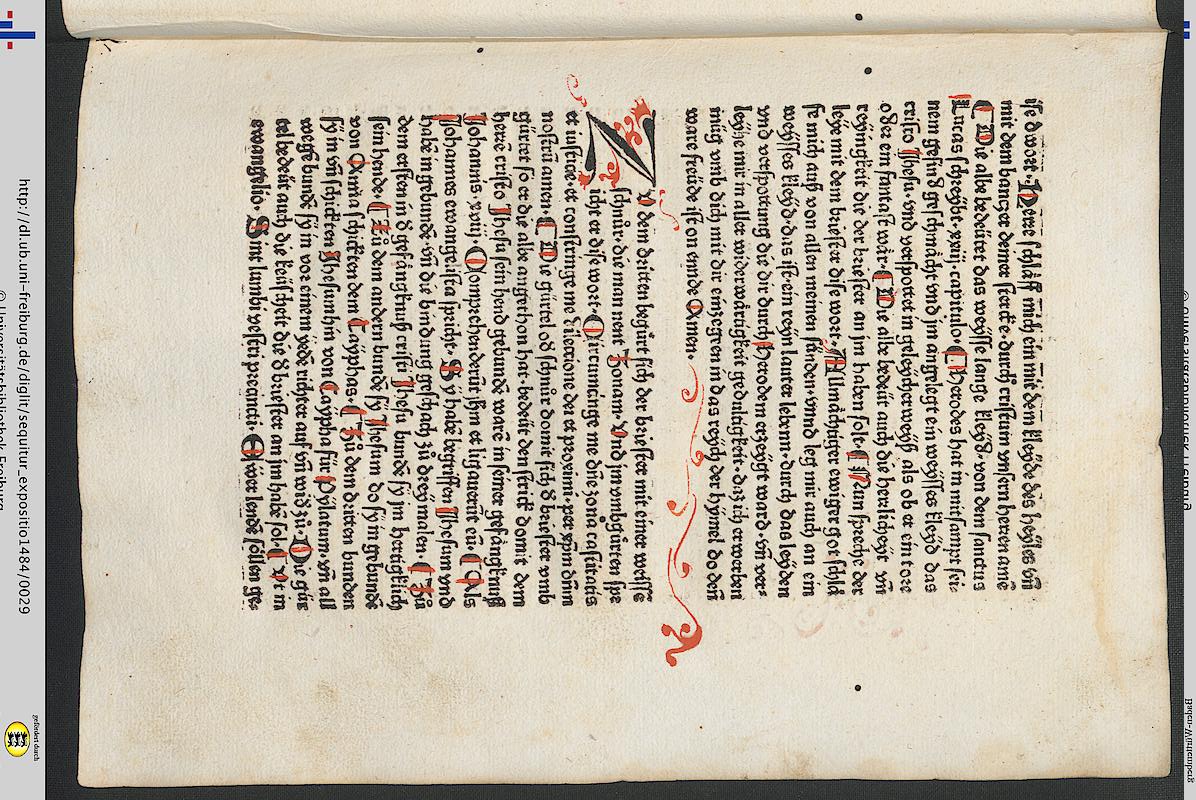 ise wort. Here schlaff mich ein mit dem kleyde des heyles vn̄
mit dem banczer deiner stercke. durch cristum vnsern herren amē
Die albe bedeütet das weysse lange kleyd. von dem sanctus
Lucas schreybt. xxiij. capitulo. Herodes hat in mitsampt sei-
nem gesind geschmächt vnd jm angelegt ein weysses kleyd das
cristo Jhesu. vnd verspottet in geleycher weyß als ob er ein tore
oder ein fantast wär. Die albe bedeüt auch die herlicheyt vn̄
reynigkeit die der briester an jm haben solt. Nun spreche der
leye mit dem briester dise wort. Allmächtiger ewiger got schla
fe mich auß von allen meinen sünden. vnnd leg mir auch an ein
weysses kleyd. das ist ein reyn lauter leben. durch das leyden
vnd verspottung die dir durch herodem erzeygt ward. vn̄ ver-
leyhe mir in aller widerwärtigkeit gedultigkeit. daz ich erwerben
müg vmb dich mit dir einzegeen in das reych der hymel do dein
ware freüde ist on ennde Amen.
Zv dem dritten begürt sich der briester mit einer weisse
schnür. die man nent Zonam. Vnd jm vmbgürten spe
icht er dise wort. Circumcinge me dn̄e zona castitatis
et iusticie. et constringe me dilectione dei et proximi. per xp̄m dn̄m
nostrū amen. Die gürtel od̓ schnür domit sich d̓ briester vmb
gürtet so er die albe angethon hat. bedeüt den strick domit dem
herrē cristo Jhesu sein hend gebunde ware in seiner gefängknuß
Johannis. xviij. Comprehenderūt jhm et ligauerūt eū. Als
Johannes ewangelista spricht. Sy habē begriffen Jhesum vnd
habē in gebunde. vn̄ die bindung geschach zů drey malen. Zů
dem ersten in d̓ gefängknuß cristi Jhesu bundē sy jm hertigklich
sein hende. Zů dem andern bundē sy Jhesum do sy in gebundē
von Anna schickten dem Cayphas. Zů dem dritten bunden
sy in vn̄ schickten Jhesum hin von Caypha für Pylatum. vn̄ all
wege bundē sy in vor einem yedē richter auf vn̄ wid̓ zů. Die gür
tel bedeüt auch die keüscheit die d̓ briester an jm habē sol. Vt in
ewangelio. Sint lumbi vestri precincti. Ewer lendē söllen ge-
http://dl.ub.uni-freiburg.de/diglit/sequitur_expositio1484/0029
© Universitätsbibliothek Freiburg
gefördert durch